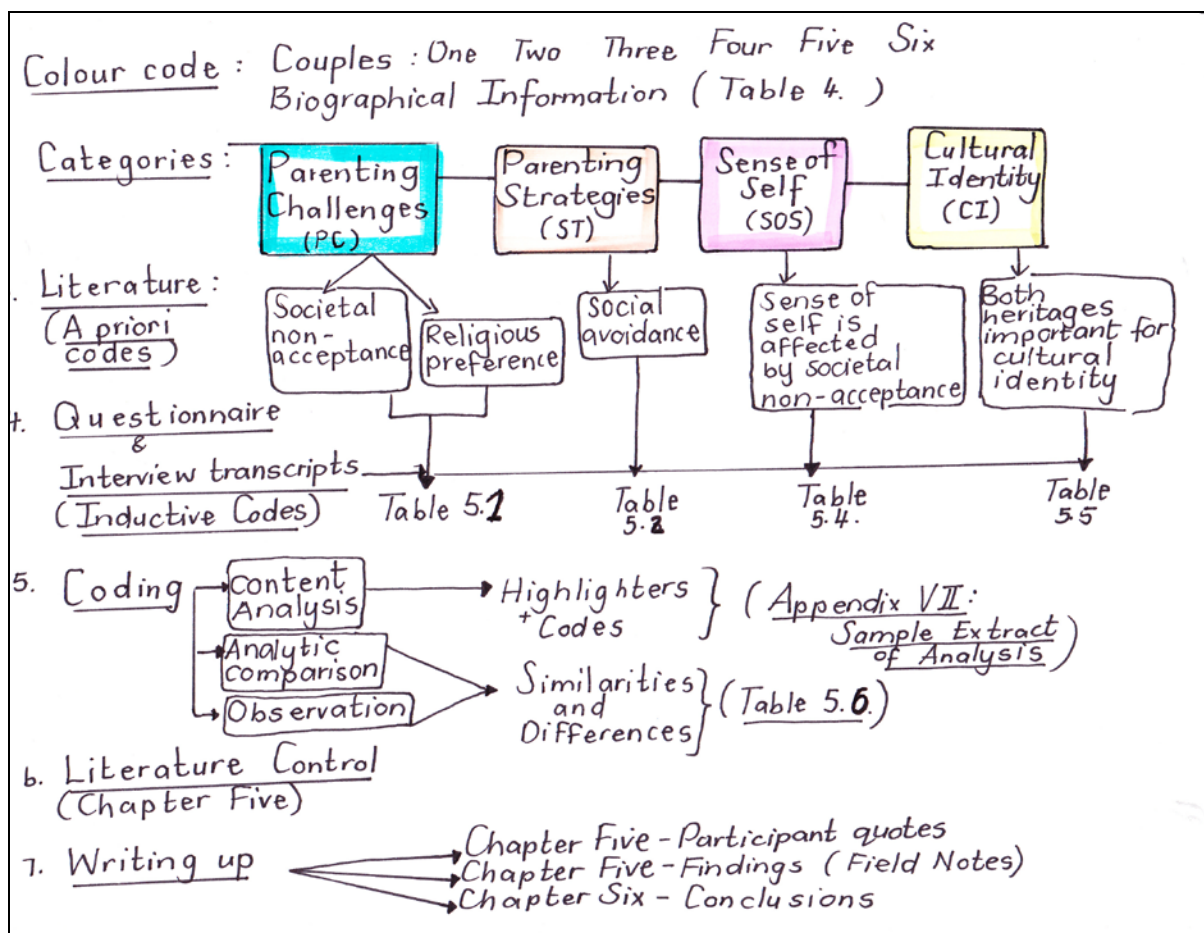 Colour code : Couples : One Two Three Four Five Six
Biographical Information ( Table 4. )
Categories :
Parenting
Challenges
(PC)
Parenting
Strategies
(ST)
Sense of
Self
(SOS)
Cultural
Identity
(CI)
. Literature :
(A priori
codes)
Societal
non-
acceptance
Religious
preference
Social
avoidance
Sense of
self is
affected
by societal
non-acceptance
Both
heritages
important for
cultural
identity
4. Questionnaire
&
Interview transcripts
(Inductive Codes)
Table 5.1
Table
5.2
Table
5.4.
Table
5.5
5. Coding
Content
Analysis
Analytic
comparison
Observation
Highlighters
+ Codes
} (Appendix VII:
Sample Extract
of Analysis)
Similarities
and
Differences
} (Table 5.6.)
6. Literature Control
(Chapter Five)
7. Writing up
Chapter Five - Participant quotes
Chapter Five - Findings (Field Notes)
Chapter Six - Conclusions